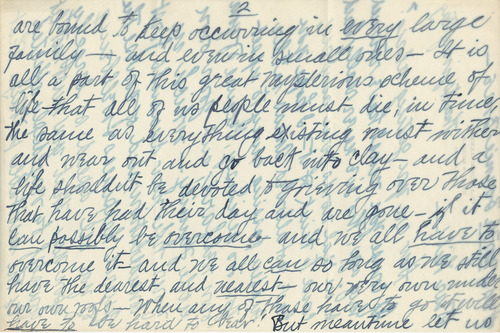 2
are bound to keep occurring in every large
family - and even in small ones - It is
all a part of this great mysterious scheme of
life - that all of us people must die, in time
the same as everything existing must wither
and wear out and go back into clay - and a
life shouldn't be devoted to grieving over those
that have had their day and are gone - if it
can possibly be overcome - and we all have to
overcome it - and we all can so long as we still
have the dearest, and nearest - our very own under
our own roofs - When any of those have to go it will
have to be hard to bear. But meantime let us